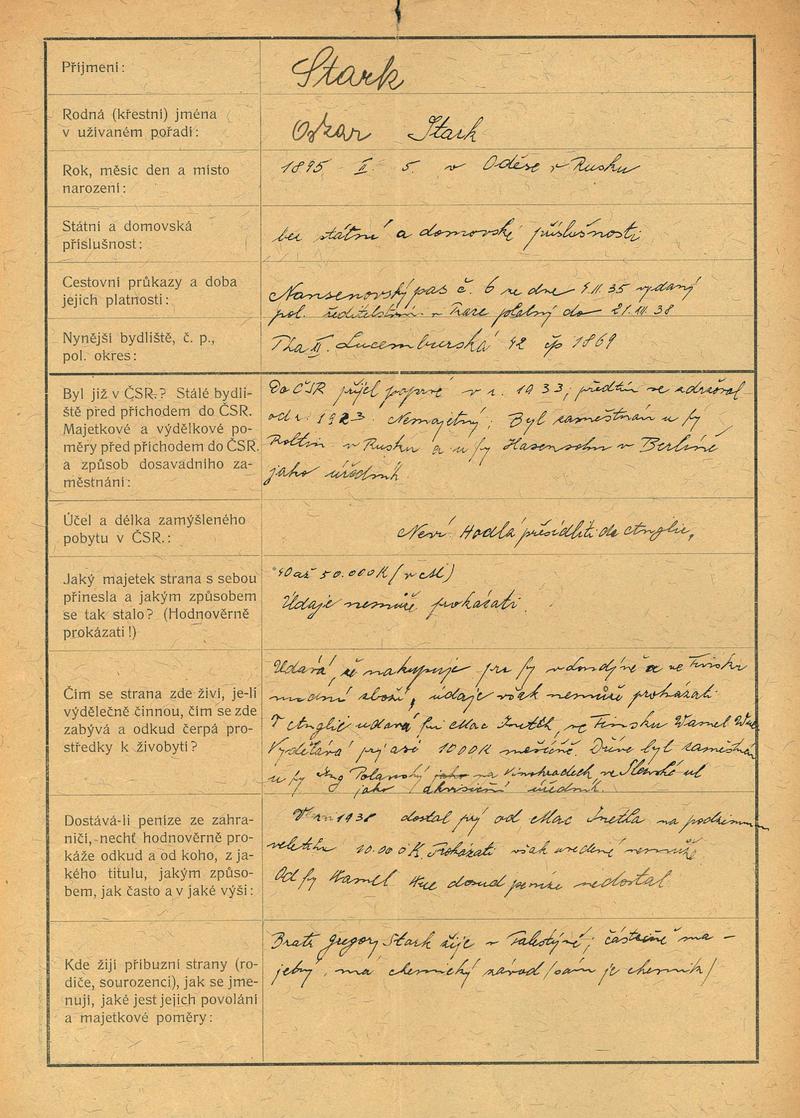 Příjmení:
Stark
Rodná (křestní) jména
v užívaném pořadí:
Oskar Stark
Rok, měsíc den a místo
narození:
1895 II. 5. v Oděse v Rusku
Státní a domovská
příslušnost:
bez státní a domovské příslušnosti
Cestovní průkazy a doba
jejich platnosti:
Nansenovský pas č. 6 ze dne II. 35 vydaný
pol. ředitelstvím v Praze platný do 21. III. 38
Nynější bydliště, č. p.,
pol. okres:
Lucemburská 42 čp 1869
Byl již v ČSR.? Stálé bydli-
ště před příchodem do ČSR.
Majetkové a výdělkové po-
měry před příchodem do ČSR.
a způsob dosavadního za-
městnání:
Do ČSR přijel poprvé v r. 1933; předtím se zdržoval
od r. 1923. Nemajetný; Byl zaměstnán u fy
v Rusku a u fy Hasensohn v Berlíně
jako úředník.
Účel a délka zamýšleného
pobytu v ČSR.:
Neví. Hodlá přesídliti do Anglie.
Jaký majetek strana s sebou
přinesla a jakým způsobem
se tak stalo? (Hodnověrně
prokázati!)
40 až 50.000 K (v
Údaje nemůže prokázati.
Čím se strana zde živí, je-li
výdělečně činnou, čím se zde
zabývá a odkud čerpá pro-
středky k živobytí?
Udává, že nakupuje pro fy v Londýně a ve Finsku
módní zboží, údaje však nemůže prokázati.
V Anglii udává fu Mac ve Finsku Wamel
Vydělává prý asi 1000 K měsíčně. Dříve byl zaměstnán
u fy Ing Polanský jako na Vinohradech, ve Slovenské ul
jako akvisiční úředník.
Dostává-li peníze ze zahra-
ničí, nechť hodnověrně pro-
káže odkud a od koho, z ja-
kého titulu, jakým způso-
bem, jak často a v jaké výši:
1938 dostal prý od Mac na podzimním
veletrhu 10.000 K. Prokázati však uvedené nemůže
Od fy Wamel dosud peníze nedostal
Kde žijí příbuzní strany (ro-
diče, sourozenci), jak se jme-
nují, jaké jest jejich povolání
a majetkové poměry:
Bratr Gregory Stark žije v Palestýně; částečně ma-
jetný, má chemický závod (sám je chemik)